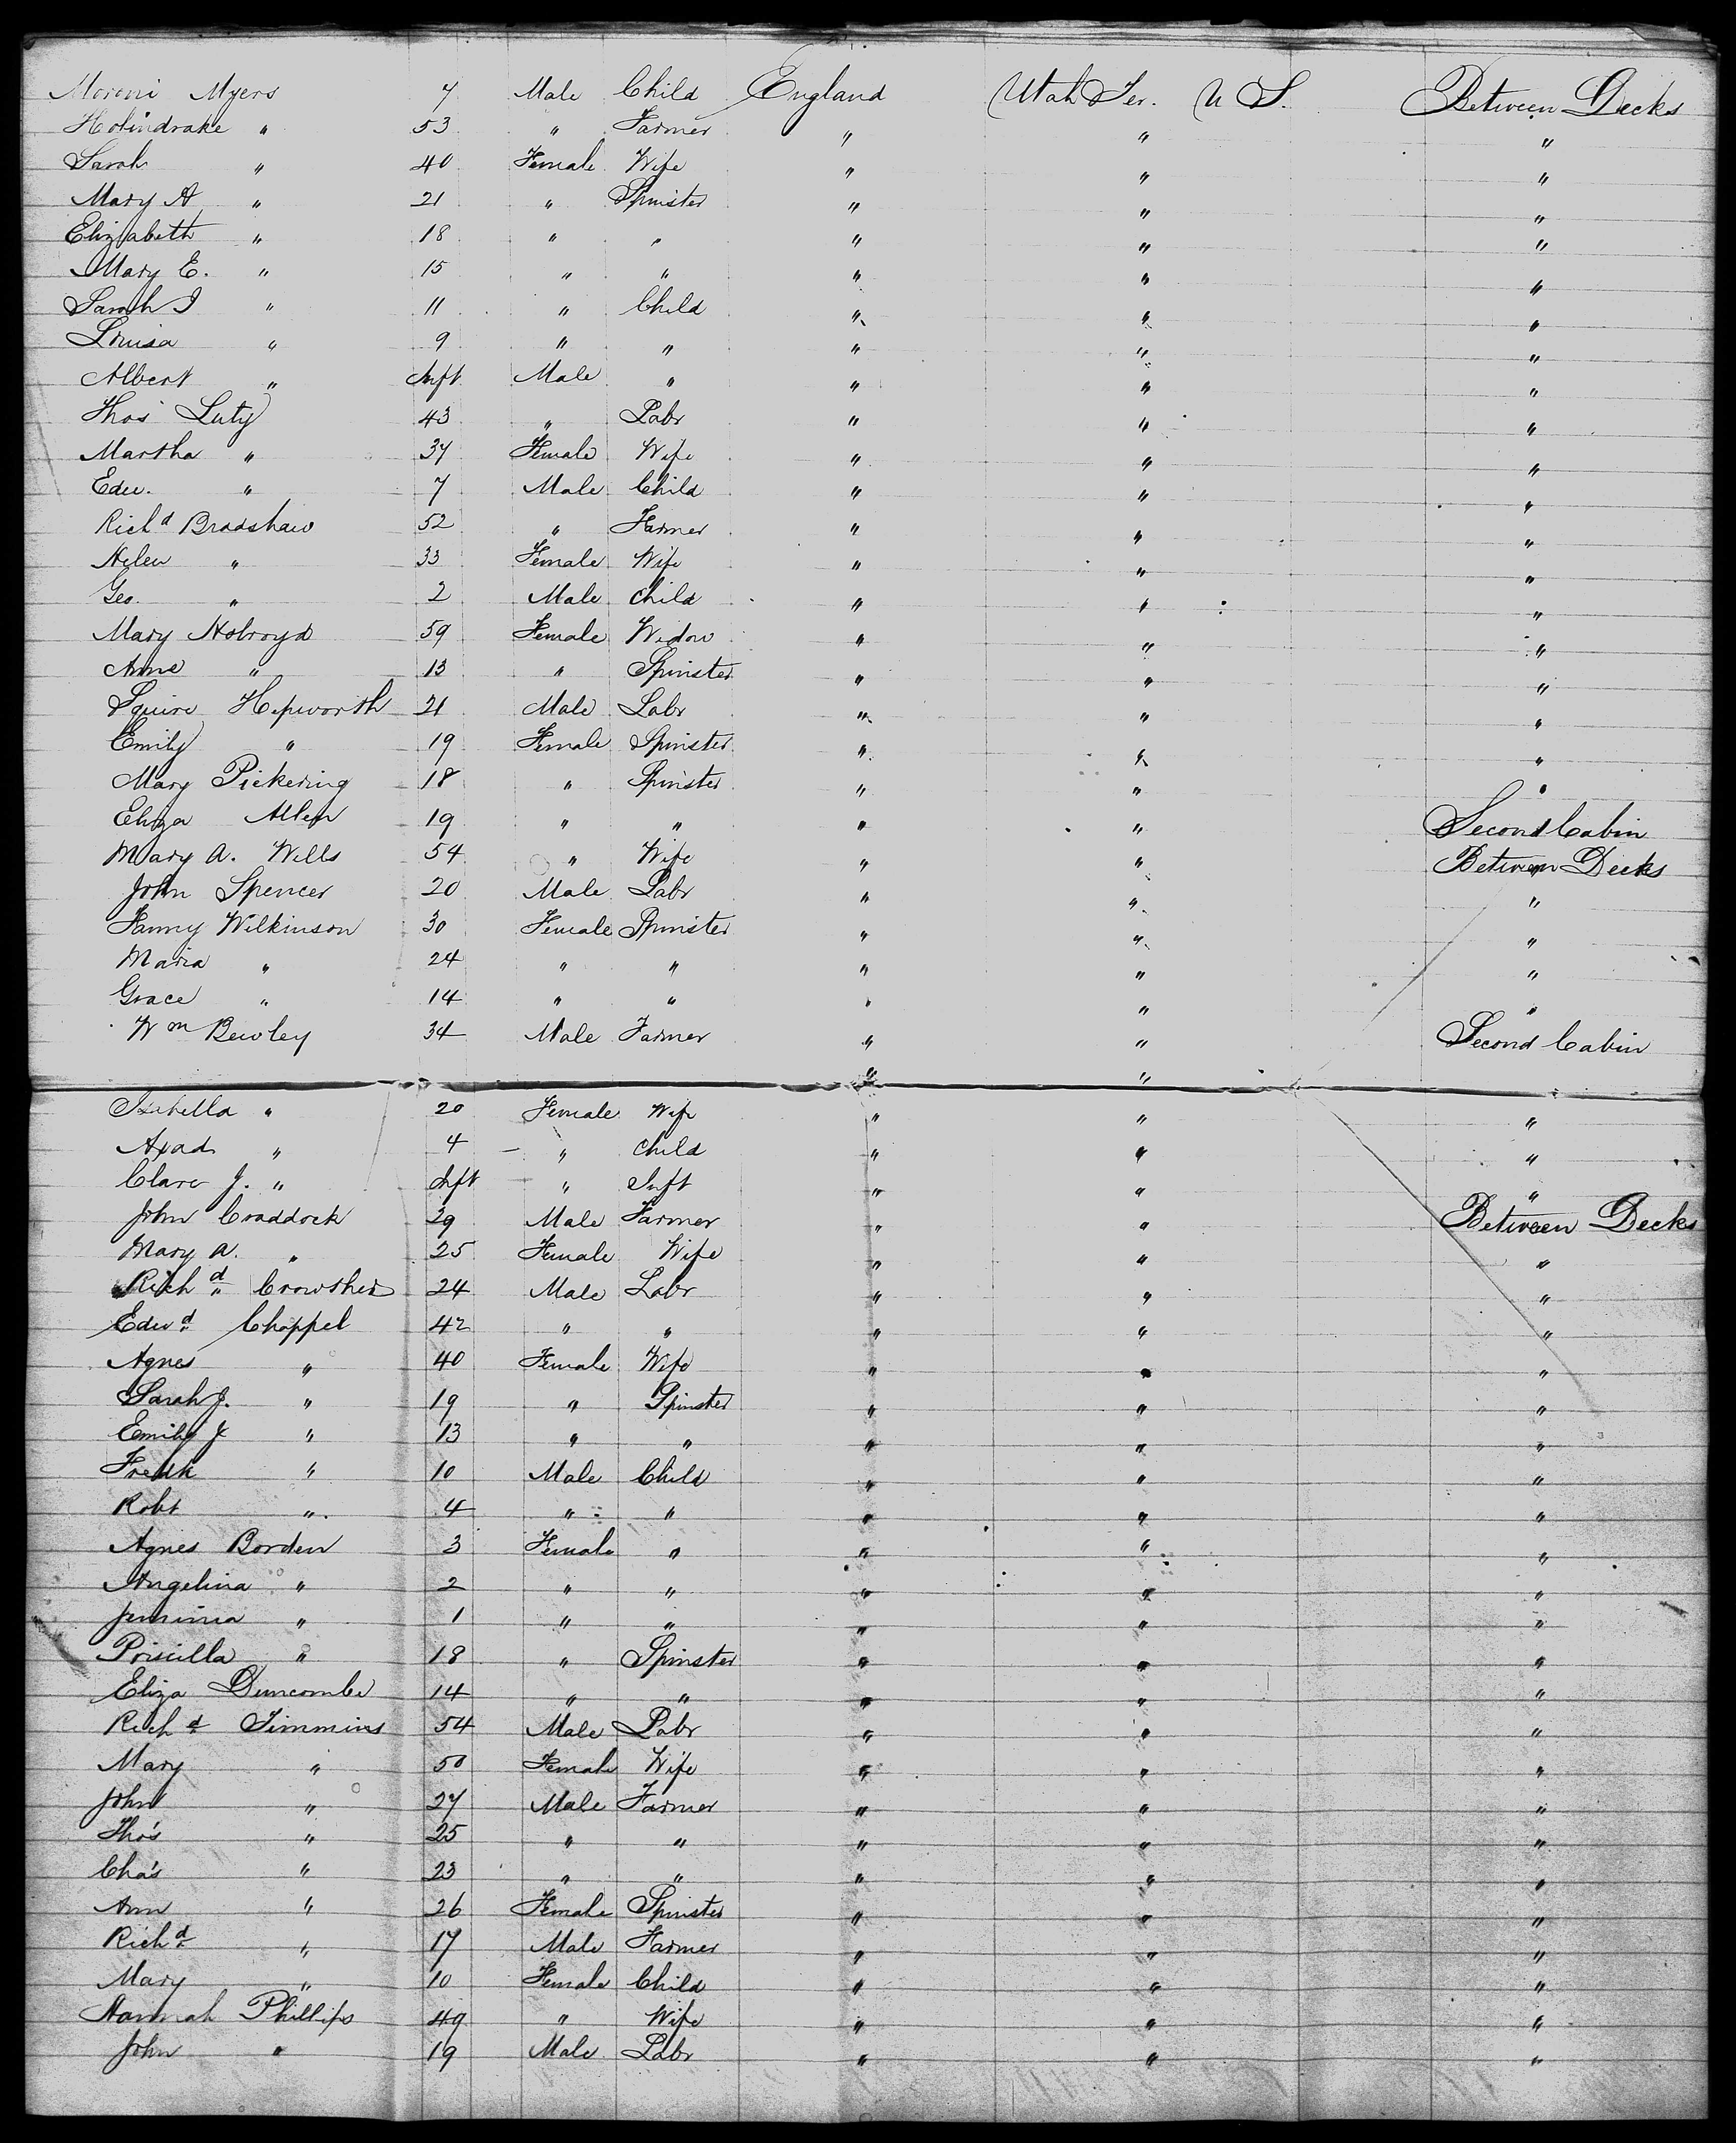 Moroni Myers 7 Male Child England Utah Ter. U S. Between Decks
Holindrake " 53 " Farmer " " "
Sarah " 40 Female Wife " " "
Mary A " 21 " Spinster " " "
Elizabeth " 18 " " " " "
Mary E. " 15 " " " " "
Sarah I " 11 " Child " " "
Louisa " 9 " " " " "
Albert " Inft Male " " " "
Thos Luty 43 " Labr " " "
Martha " 37 Female Wife " " "
Edw. " 7 Male Child " " "
Richd Bradshaw 52 " Farmer " " "
Helen " 33 Female Wife " " "
Geo. " 2 Male Child " " "
Mary Holroyd 59 Female Widow " " "
Anne " 13 " Spinster " " "
Squire Hepworth 21 Male Labr " " "
Emily " 19 Female Spinster " " "
Mary Pickering 18 " Spinster " " "
Eliza Allen 19 " " " " Second Cabin
Mary A. Wills 54 " Wife " " Between Decks
John Spencer 20 Male Labr " " "
Fanny Wilkinson 30 Female Spinster " " "
Maria " 24 " " " " "
Grace " 14 " " " " "
Wm Bewley 34 Male Farmer " " Second Cabin
" "
Isabella " 20 Female Wife " " "
Axad " 4 " Child " " "
Clare J. " Inft " Inft " " "
John Craddock 29 Male Farmer " " Between Decks
Mary A. " 25 Female Wife " " "
Richd Crowther 24 Male Labr " " "
Edwd Chappel 42 " " " " "
Agnes " 40 Female Wife " " "
Sarah J. " 19 " Spinster " " "
Emily J " 13 " " " " "
Fredk " 10 Male Child " " "
Robt " 4 " " " " "
Agnes Borden 3 Female " " " "
Angelina " 2 " " " " "
Jemima " 1 " " " " "
Priscilla " 18 " Spinster " " "
Eliza Duncombe 14 " " " " "
Richd Timmins 54 Male Labr " " "
Mary " 50 Female Wife " " "
John " 27 Male Farmer " " "
Tho's " 25 " " " " "
Cha's " 23 " " " " "
Ann " 26 Female Spinster " " "
Richd " 17 Male Farmer " " "
Mary " 10 Female Child " " "
Hannah Phillips 49 " Wife " " "
John " 19 Male Labr " " "